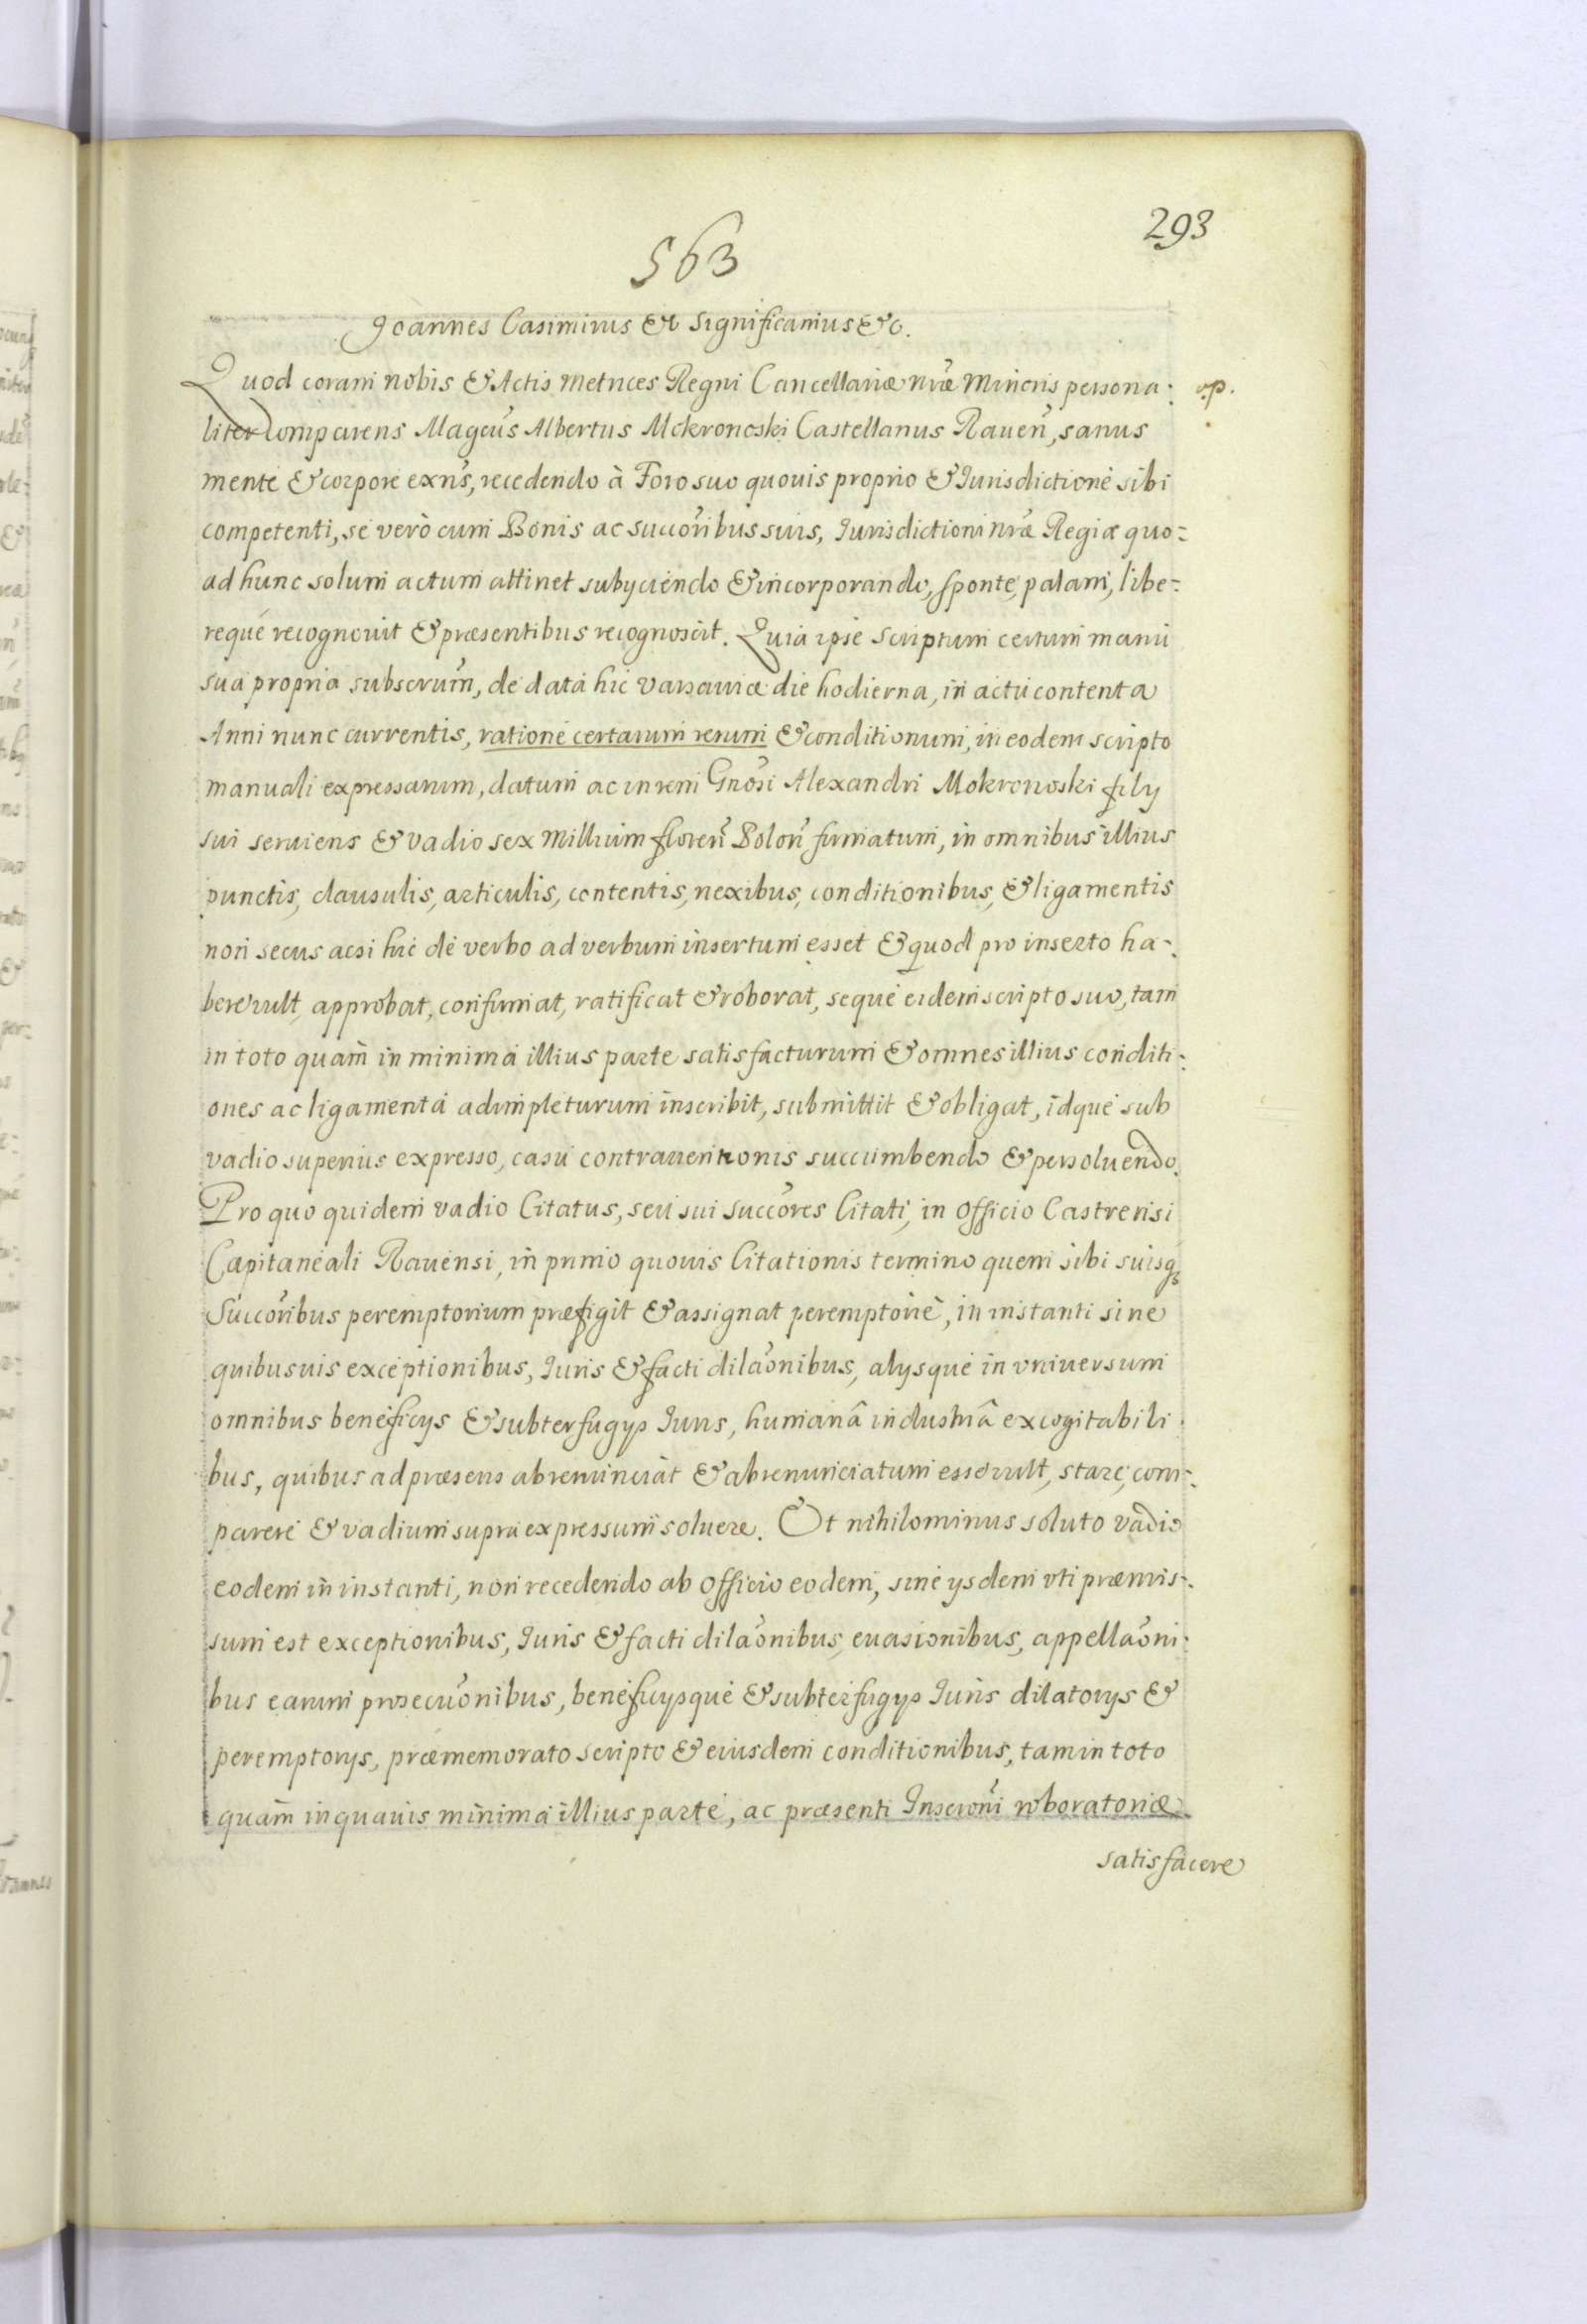 293
563
Joannes Casimirus Et Significamus &c.
Quod coram nobis & Actis Metrices Regni Cancellariæ nr̃æ Minoris persona: op.
liter Comparens Magcus Albertus Mokronoski Castellanus Raueñ, sanus
mente & corpore exñs, recedendo à Foro suo quouis proprio & Jurisdictione sibi
competenti, se verò cum Bonis ac succõribus suis, Jurisdictioni nr̃æ Regiæ quo-
ad hunc solum actum attinet subyciendo & incorporando, sponte, palam, libe-
reque recognouit & præsentibus recognoscit. Quia ipse scriptum certum manu
sua propria subscrum̃, de data hic Varsauiæ die hodierna, in actu contenta
Anni nunc currentis, ratione certarum rerum & conditionum, in eodem scripto
manuali expressarum, datum ac in rem Gnõsi Alexandri Mokronoski fily
sui seruiens & vadio sex Millium floreñ Poloñ firmatum, in omnibus illius
punctis, clausulis, articulis, contentis, nexibus, conditionibus, & ligamentis
non secus acsi hic de verbo ad verbum insertum esset & quod pro inserto ha-
bere vult, approbat, confirmat, ratificat & roborat, seque eidem scripto suo, tam
in toto quam̃ in minima illius parte satisfacturum & omnes illius conditi:
ones ac ligamenta adimpleturum inscribit, submittit & obligat, idque sub
vadio superius expresso, casu contrauentionis succumbendo & persoluendo.
Pro quo quidem vadio Citatus, seu sui succõres Citati, in Officio Castrensi
Capitaneali Rauensi, in primo quouis Citationis termino quem sibi suisq₃
Succõribus peremptorium præfigit & assignat peremptoriè, in instanti sine
quibusuis exceptionibus, Juris & facti dilaõnibus, alysque in vniuersum
omnibus beneficys & subterfugys Juris, humanâ industriâ excogitabili
bus, quibus ad præsens abrenunciat & abrenunciatum esse vult, stare, com-
parere & vadium supra expressum soluere. Et nihilominus soluto vadio
eodem in instanti, non recedendo ab Officio eodem, sine ysdem vti præmis-
sum est exceptionibus, Juris & facti dilaõnibus, euasionibus, appellaõni:
bus earum prosecuõnibus, beneficysque & subterfugys Juris dilatorys &
peremptorys, præmemorato scripto & eiusdem conditionibus, tam in toto
quam̃ in quauis minima illius parte, ac præsenti Inscrõni roboratoriæ
satisfacere